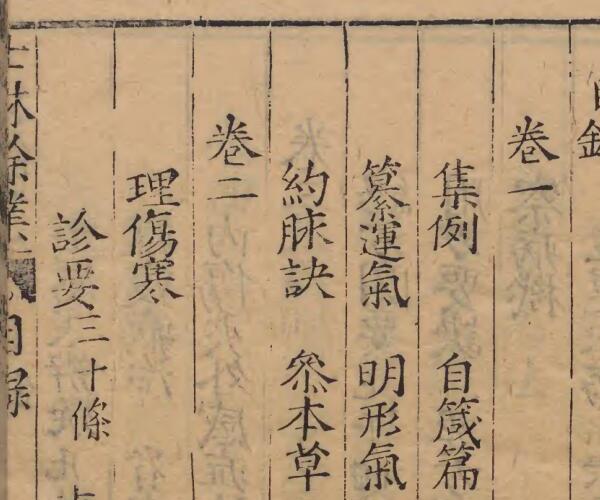 目錄
卷一
集例 自箴篇
纂運氣 明形氣
約脉訣 叅本草
卷二
理傷寒
診要三十條
士林餘業 目録